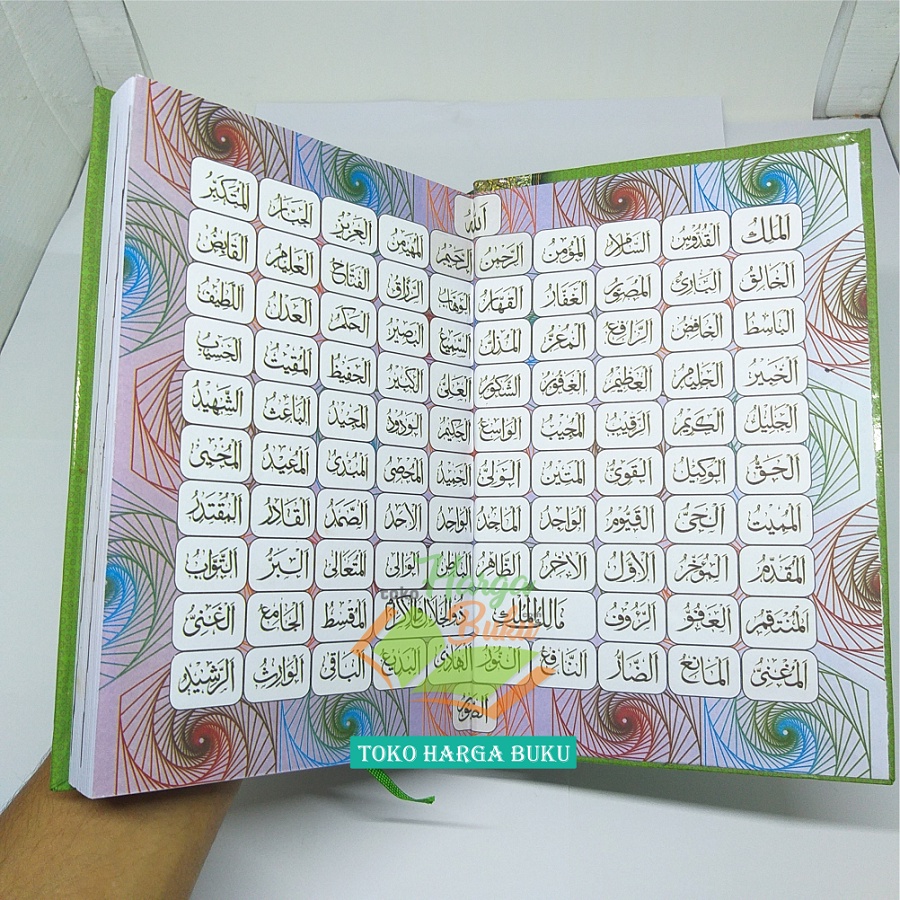 الله
الملك القدوس السلام المؤمن الرحمن الرحيم المهيمن العزيز الجبار المتكبر
الخالق البارئ المصور الغفار القهار الوهاب الرزاق الفتاح العليم القابض
الباسط الخافض الرافع المعز المذل السميع البصير الحكم العدل اللطيف
الخبير الحليم العظيم الغفور الشكور العلي الكبير الحفيظ المقيت الحسيب
الجليل الكريم الرقيب المجيب الواسع الحكيم الودود المجيد الباعث الشهيد
الحق الوكيل القوي المتين الولي الحميد المحصي المبدئ المعيد المحيي
المميت الحي القيوم الواجد الماجد الواحد الأحد الصمد القادر المقتدر
المقدم المؤخر الأول الآخر الظاهر الباطن الوالي المتعالي البر التواب
المنتقم العفو الرؤوف مالك الملك ذو الجلال والإكرام المقسط الجامع الغني
المغني المانع الضار النافع النور الهادي البديع الباقي الوارث الرشيد
الصبور
toko Harga
Buku
TOKO HARGA BUKU